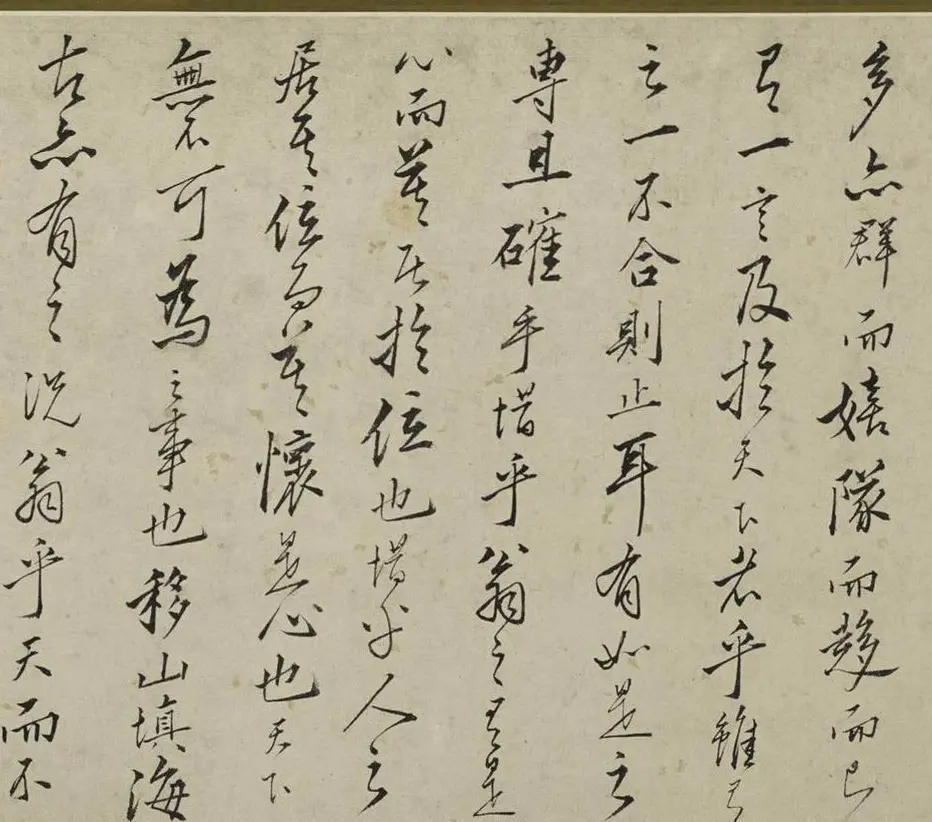 多亦群而嬉隊而趍而已
有一言及於天下者乎雖有
之一不合則止耳有如是之
專且確乎惜乎翁之有是
心而莫居於位也惜乎人之
居其位而莫懷是心也天下
無不可為之事也移山填海
古亦有之況翁乎天而不